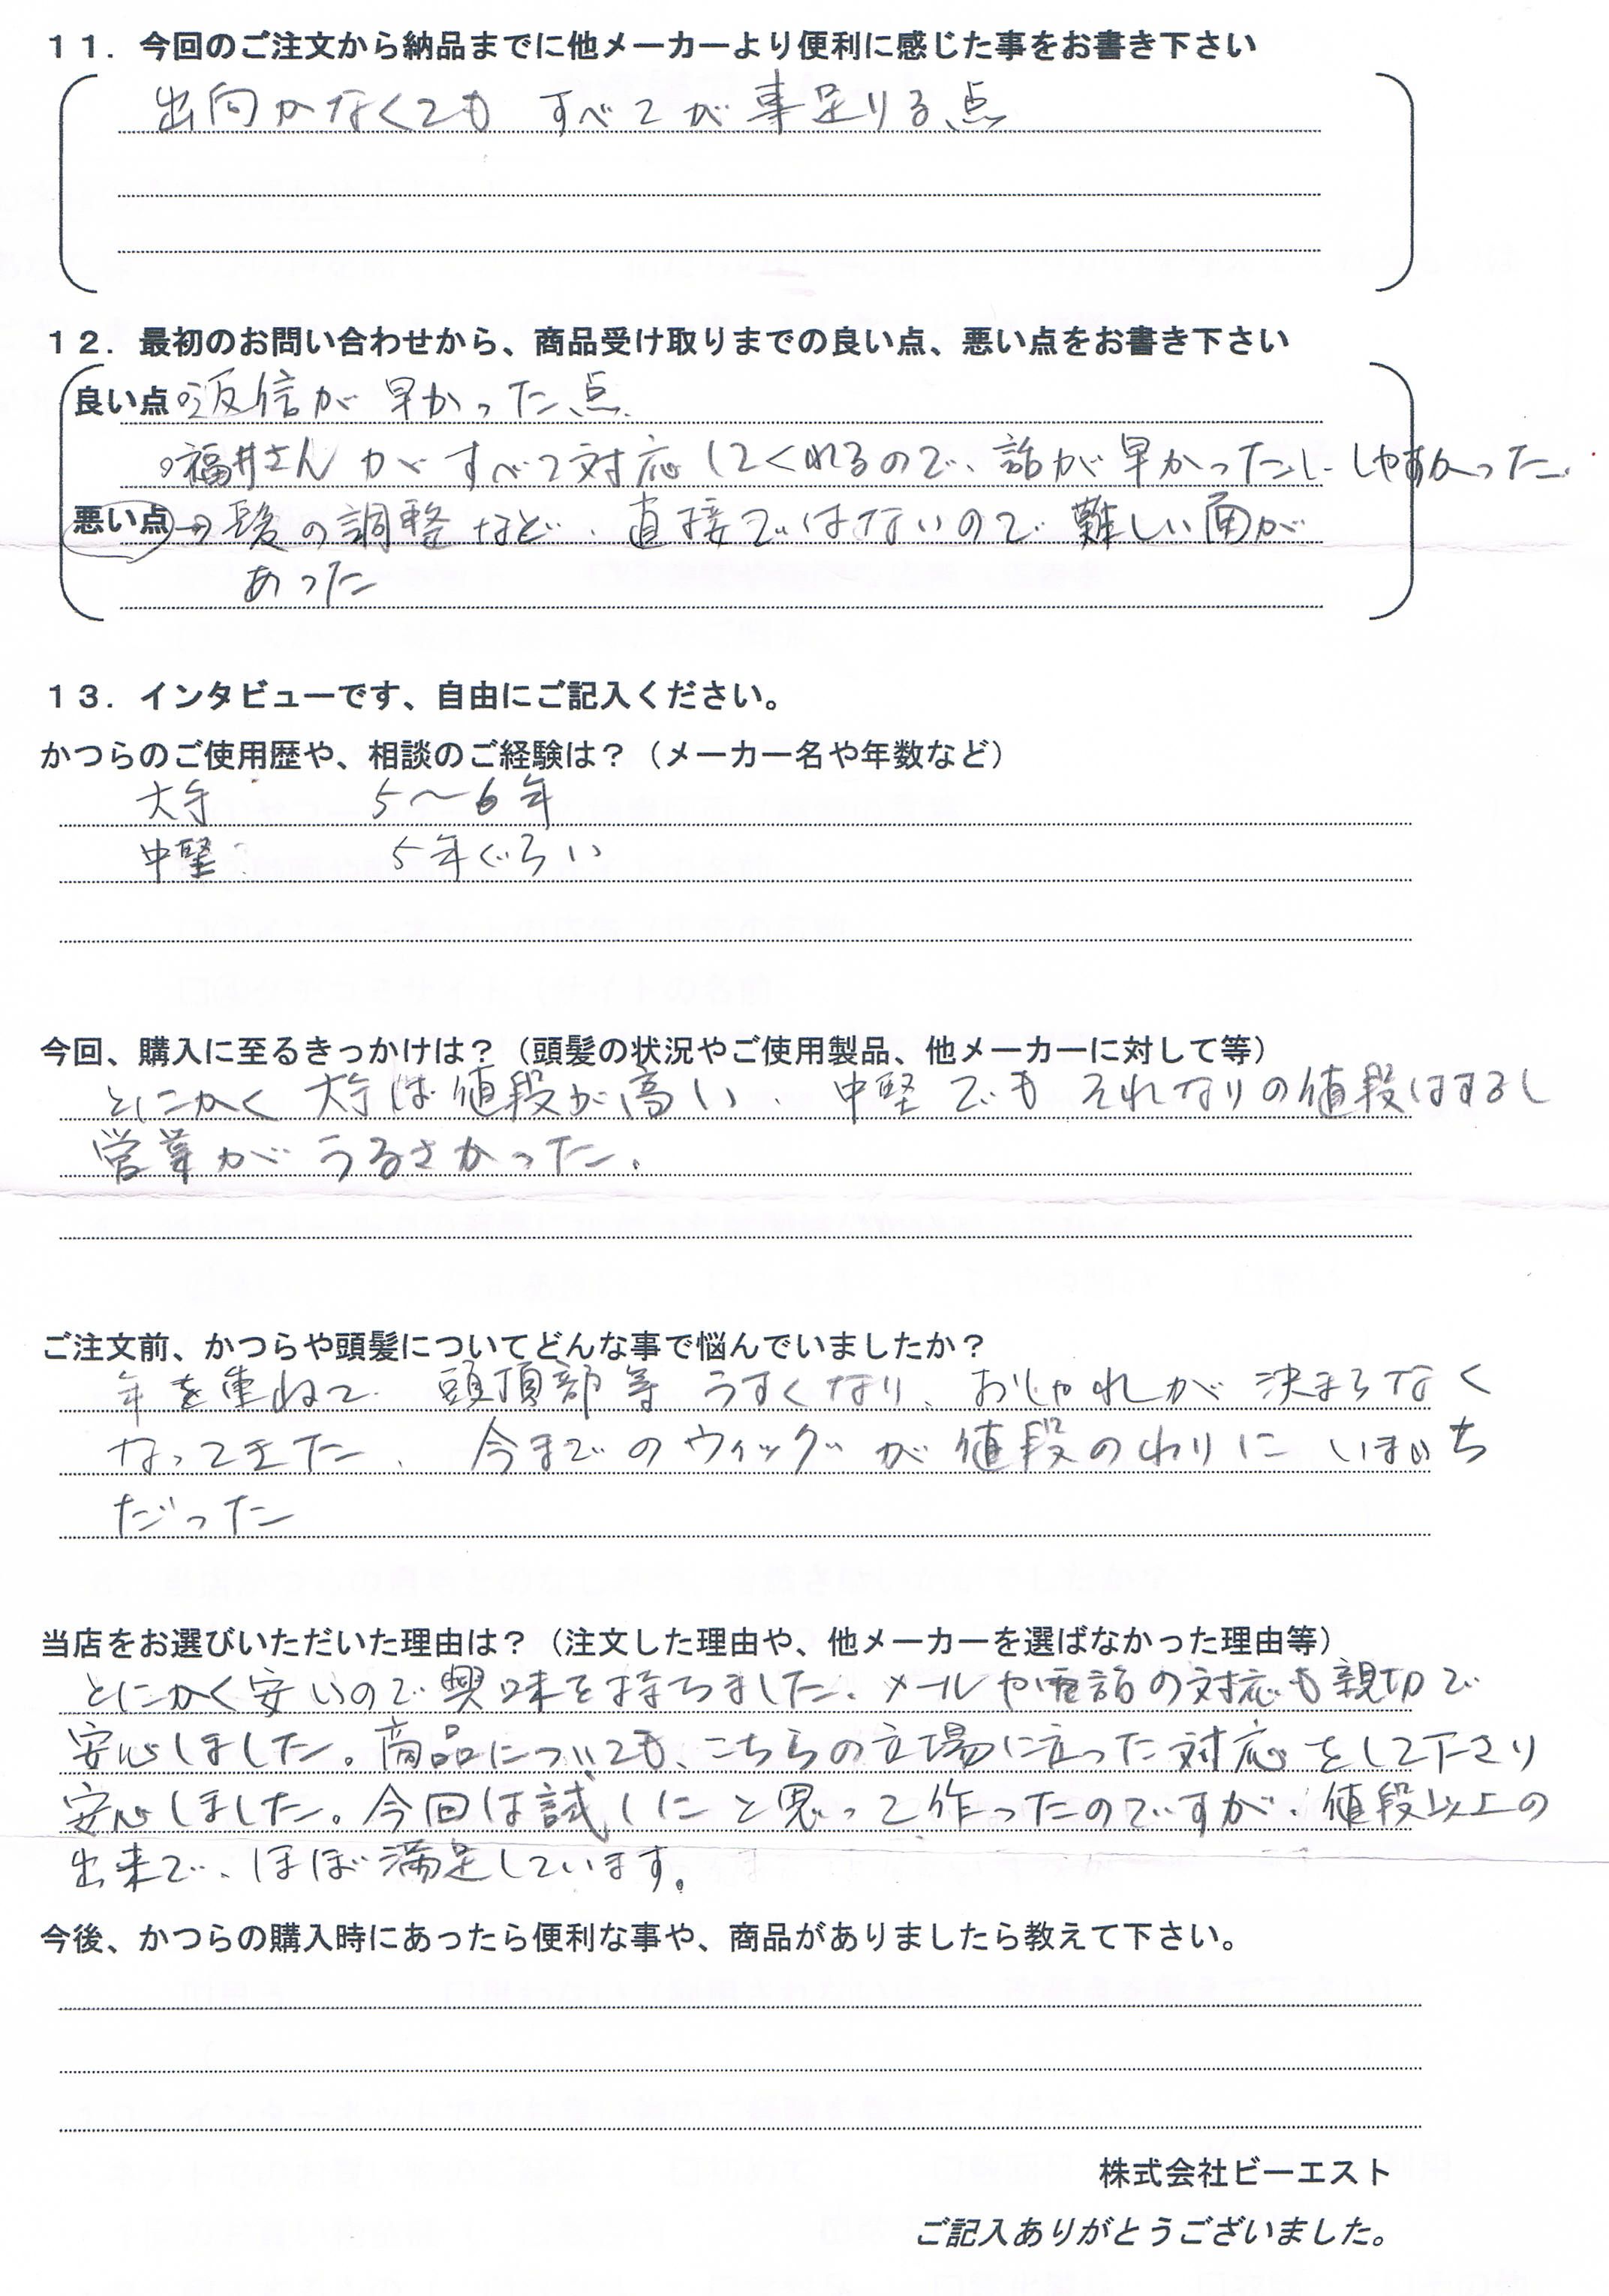 １１．今回のご注文から納品までに他メーカーより便利に感じた事をお書き下さい
出向かなくても すべてが事足りる点
１２．最初のお問い合わせから、商品受け取りまでの良い点、悪い点をお書き下さい
良い点 ○返信が早かった点
○福井さんがすべて対応してくれるので、話が早かったし しやすかった
悪い点→髪の調整など、直接ではないので難しい面が
あった
１３．インタビューです、自由にご記入ください。
かつらのご使用歴や、相談のご経験は？（メーカー名や年数など）
大手 5〜6年
中堅 5年ぐらい
今回、購入に至るきっかけは？（頭髪の状況やご使用製品、他メーカーに対して等）
とにかく 大手は値段が高い、中堅でも それなりの値段はするし
営業が うるさかった。
ご注文前、かつらや頭髪についてどんな事で悩んでいましたか？
年を重ねて、頭頂部等 うすくなり、おしゃれが 決まらなく
なってきた、今までのウィッグが 値段のわりに いまいち
だった
当店をお選びいただいた理由は？（注文した理由や、他メーカーを選ばなかった理由等）
とにかく安いので興味を持ちました。メールや電話の対応も親切で
安心しました。商品についても、こちらの立場に立った対応をして下さり
安心しました。今回は試しにと思って作ったのですが、値段以上の
出来で、ほぼ満足しています。
今後、かつらの購入時にあったら便利な事や、商品がありましたら教えて下さい。
株式会社ビーエスト
ご記入ありがとうございました。